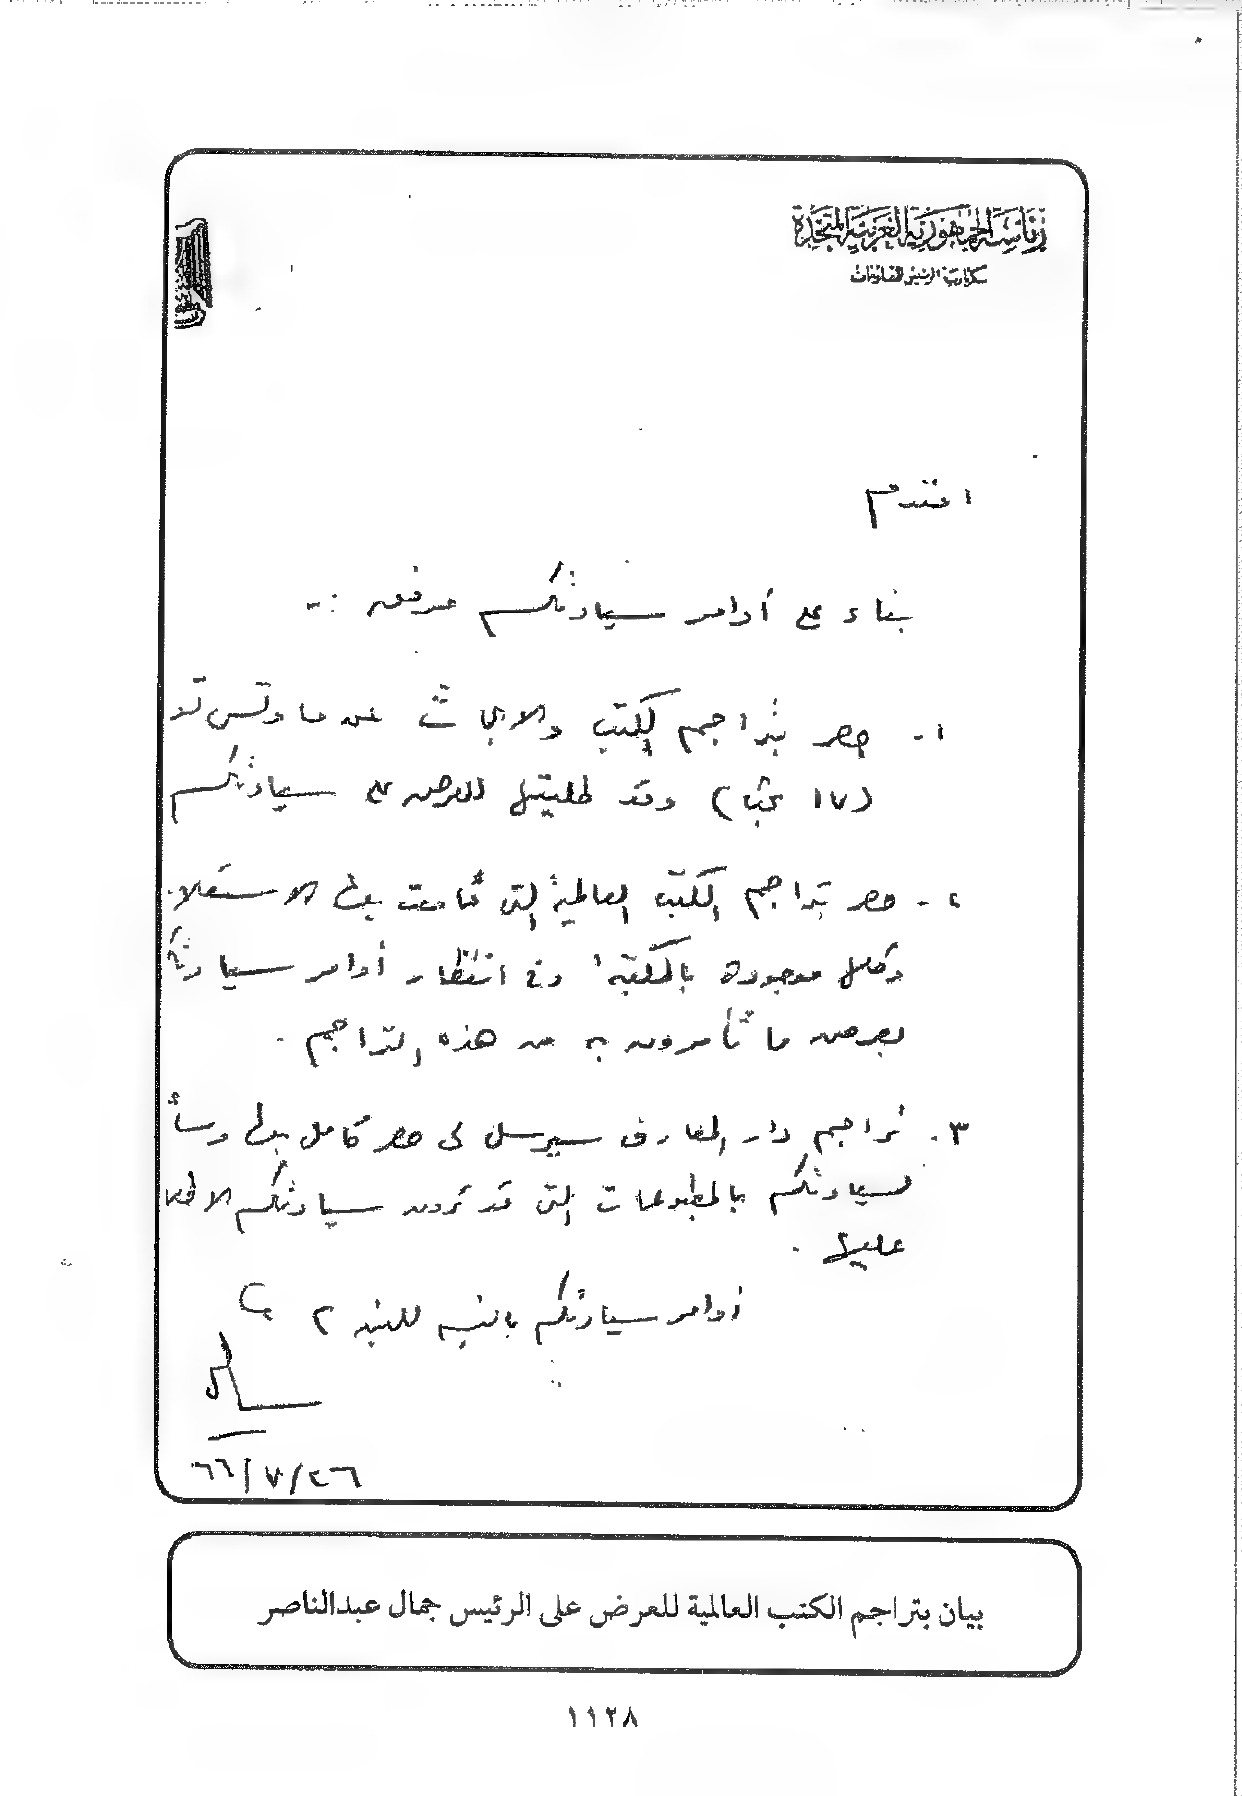 رئاسة الجمهورية العربية المتحدة
سكرتارية الرئيس للمعلومات
افندم
بناء على أوامر سيادتكم مرفق :-
١- حصر بتراجم الكتب والابحاث عن ماوتسى تو
(١٧ بحثا) وقد طلبتها للعرض على سيادتكم
٢- حصر بتراجم الكتب العالمية التى قامت بها الاستعلا
وكلها موجودة بالمكتبة وفى انتظار أوامر سيادتك
بعرض ما تأمرون به من هذه التراجم .
٣- تراجم دار المعارف سيرسل لى حصر كامل بها وسأ
لسيادتكم بالمطبوعات التى قد ترون سيادتكم الاطلا
عليها .
أوامر سيادتكم بالنسبة للبند ٢ ؟
٦٦/٧/٢٦
بيان بتراجم الكتب العالمية للعرض على الرئيس جمال عبدالناصر
١١٢٨